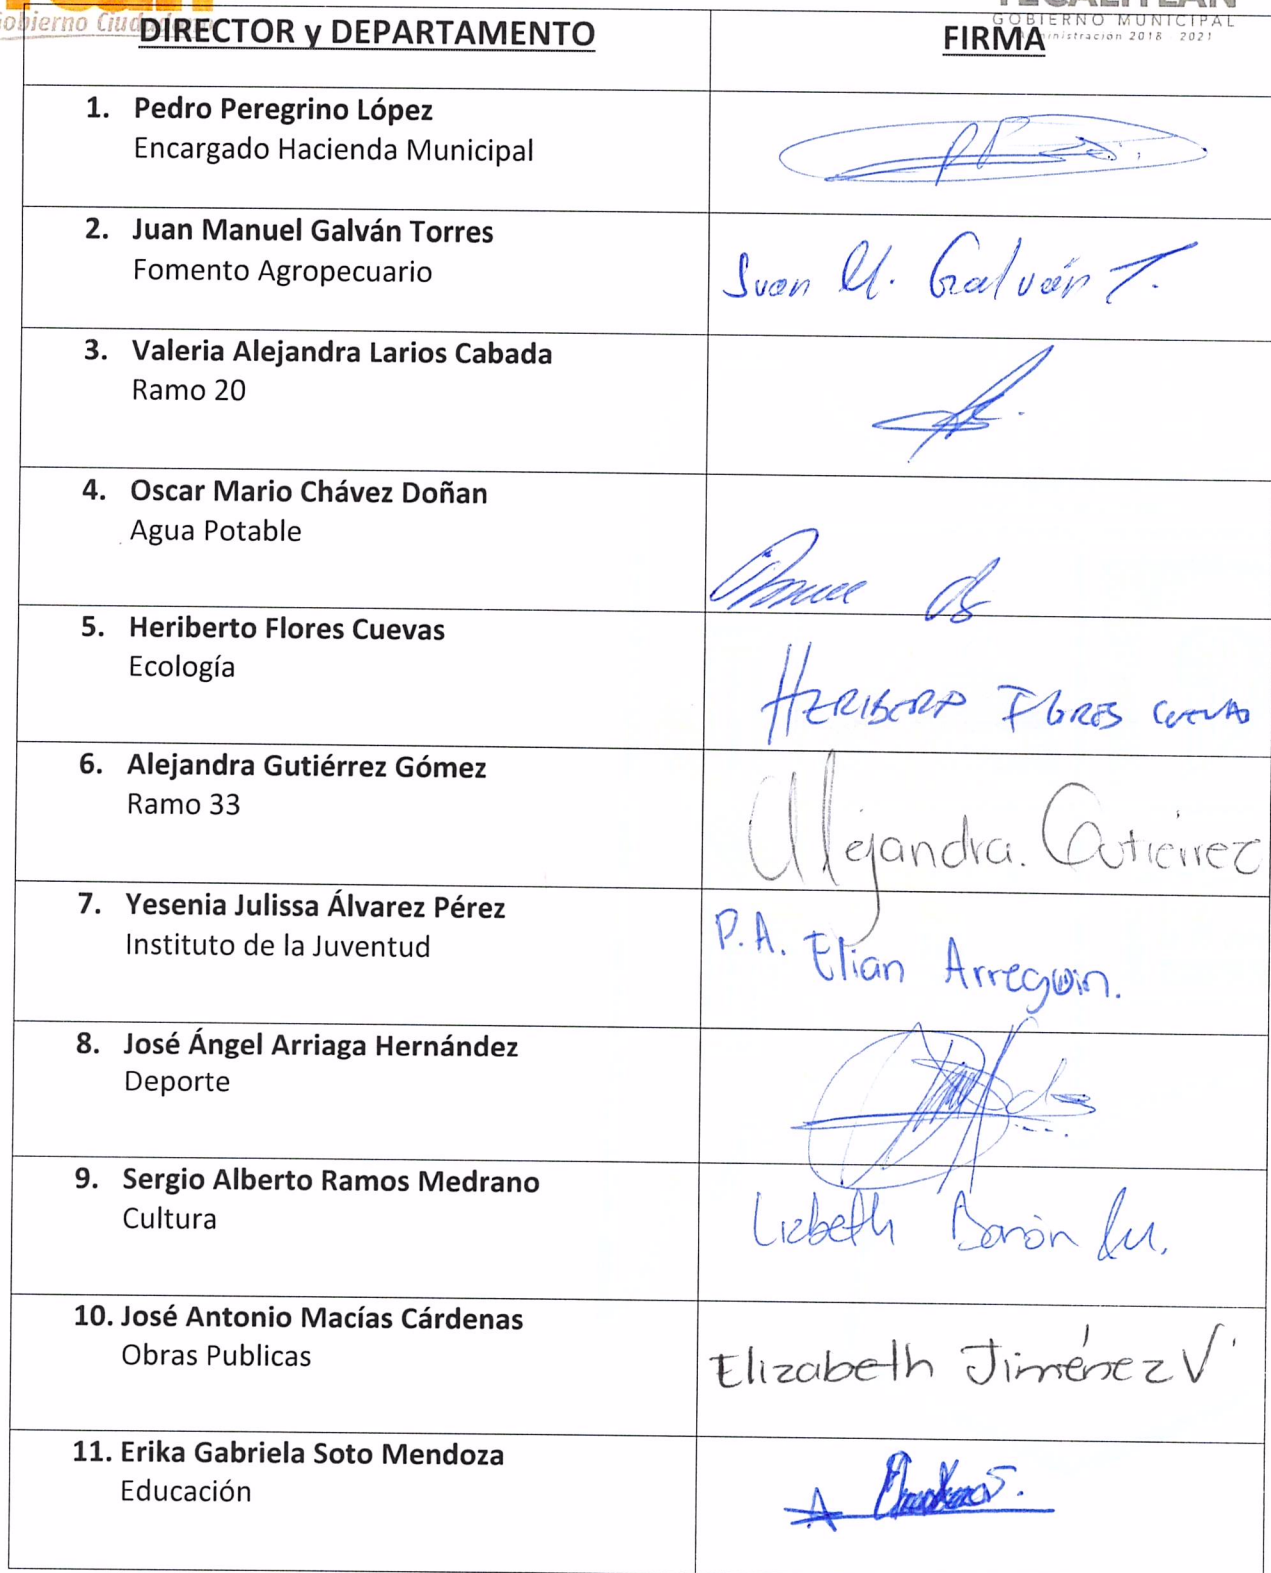 TECALITLÁN
Gobierno Ciudadano
GOBIERNO MUNICIPAL
Administración 2018 2021
DIRECTOR y DEPARTAMENTO
FIRMA
1. Pedro Peregrino López
Encargado Hacienda Municipal
2. Juan Manuel Galván Torres
Fomento Agropecuario
Juan M. Galván T.
3. Valeria Alejandra Larios Cabada
Ramo 20
4. Oscar Mario Chávez Doñan
Agua Potable
5. Heriberto Flores Cuevas
Ecología
HERIBERTO FLORES CUEVAS
6. Alejandra Gutiérrez Gómez
Ramo 33
Alejandra. Gutiérrez
7. Yesenia Julissa Álvarez Pérez
Instituto de la Juventud
P.A. Elian Arreguin.
8. José Ángel Arriaga Hernández
Deporte
9. Sergio Alberto Ramos Medrano
Cultura
Lizbeth Barón M.
10. José Antonio Macías Cárdenas
Obras Publicas
Elizabeth Jiménez V
11. Erika Gabriela Soto Mendoza
Educación